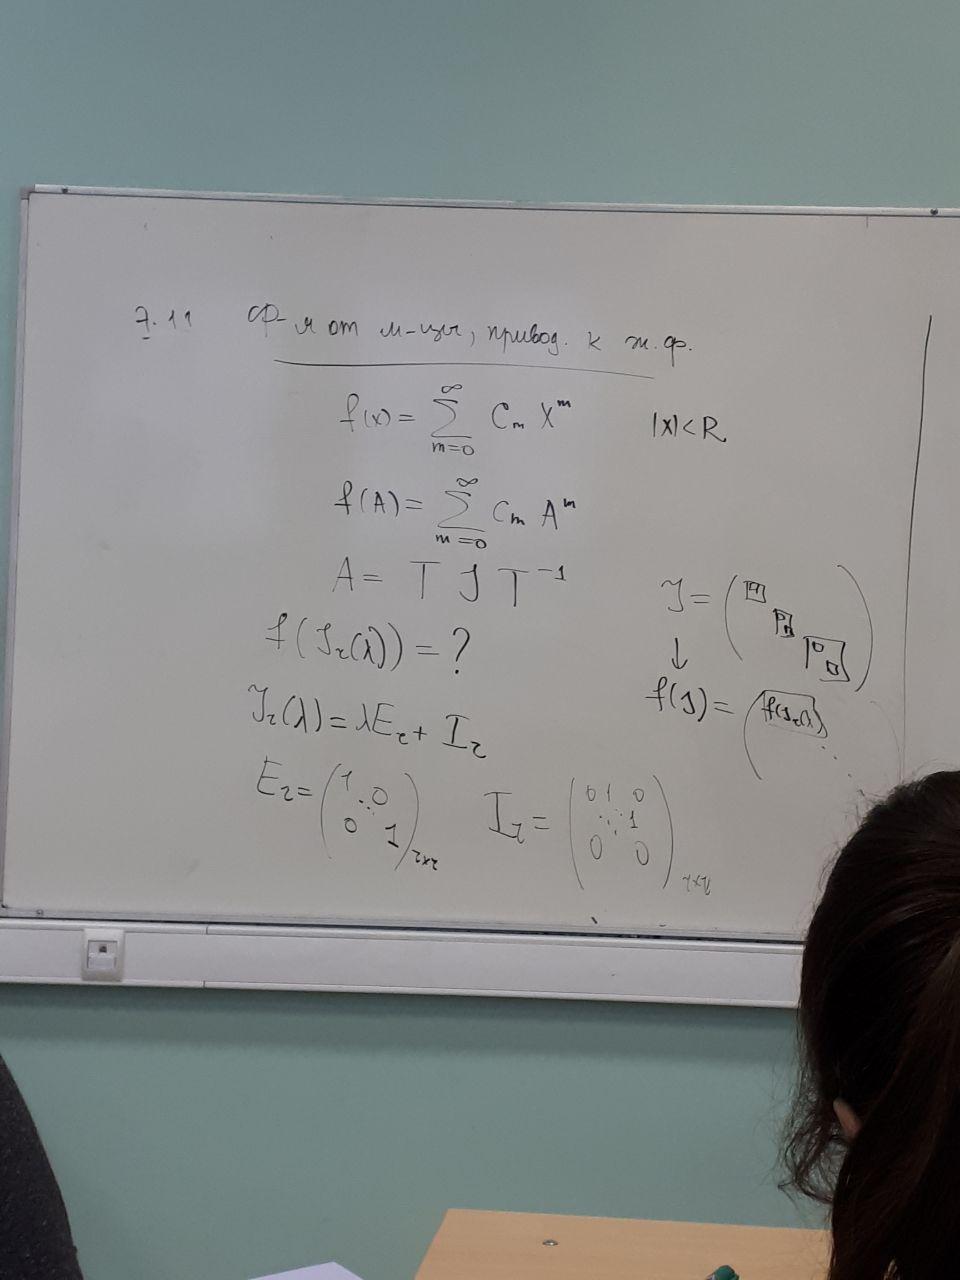 7.11 Ф-я от м-цы, привод. к ж.ф.
f(x) = ∑_{m=0}^{∞} C_m X^m |x|<R
f(A) = ∑_{m=0}^{∞} C_m A^m
A = T J T^{-1}
J =
f(J_r(λ)) = ?
↓
f(J) = ( f(J_r(λ)) ⋱
J_r(λ) = λE_r + I_r
E_r = ( 1 0 ⋱ 0 1 )_{r×r} I_r = ( 0 1 0 ⋱ 1 0 0 )_{r×r}